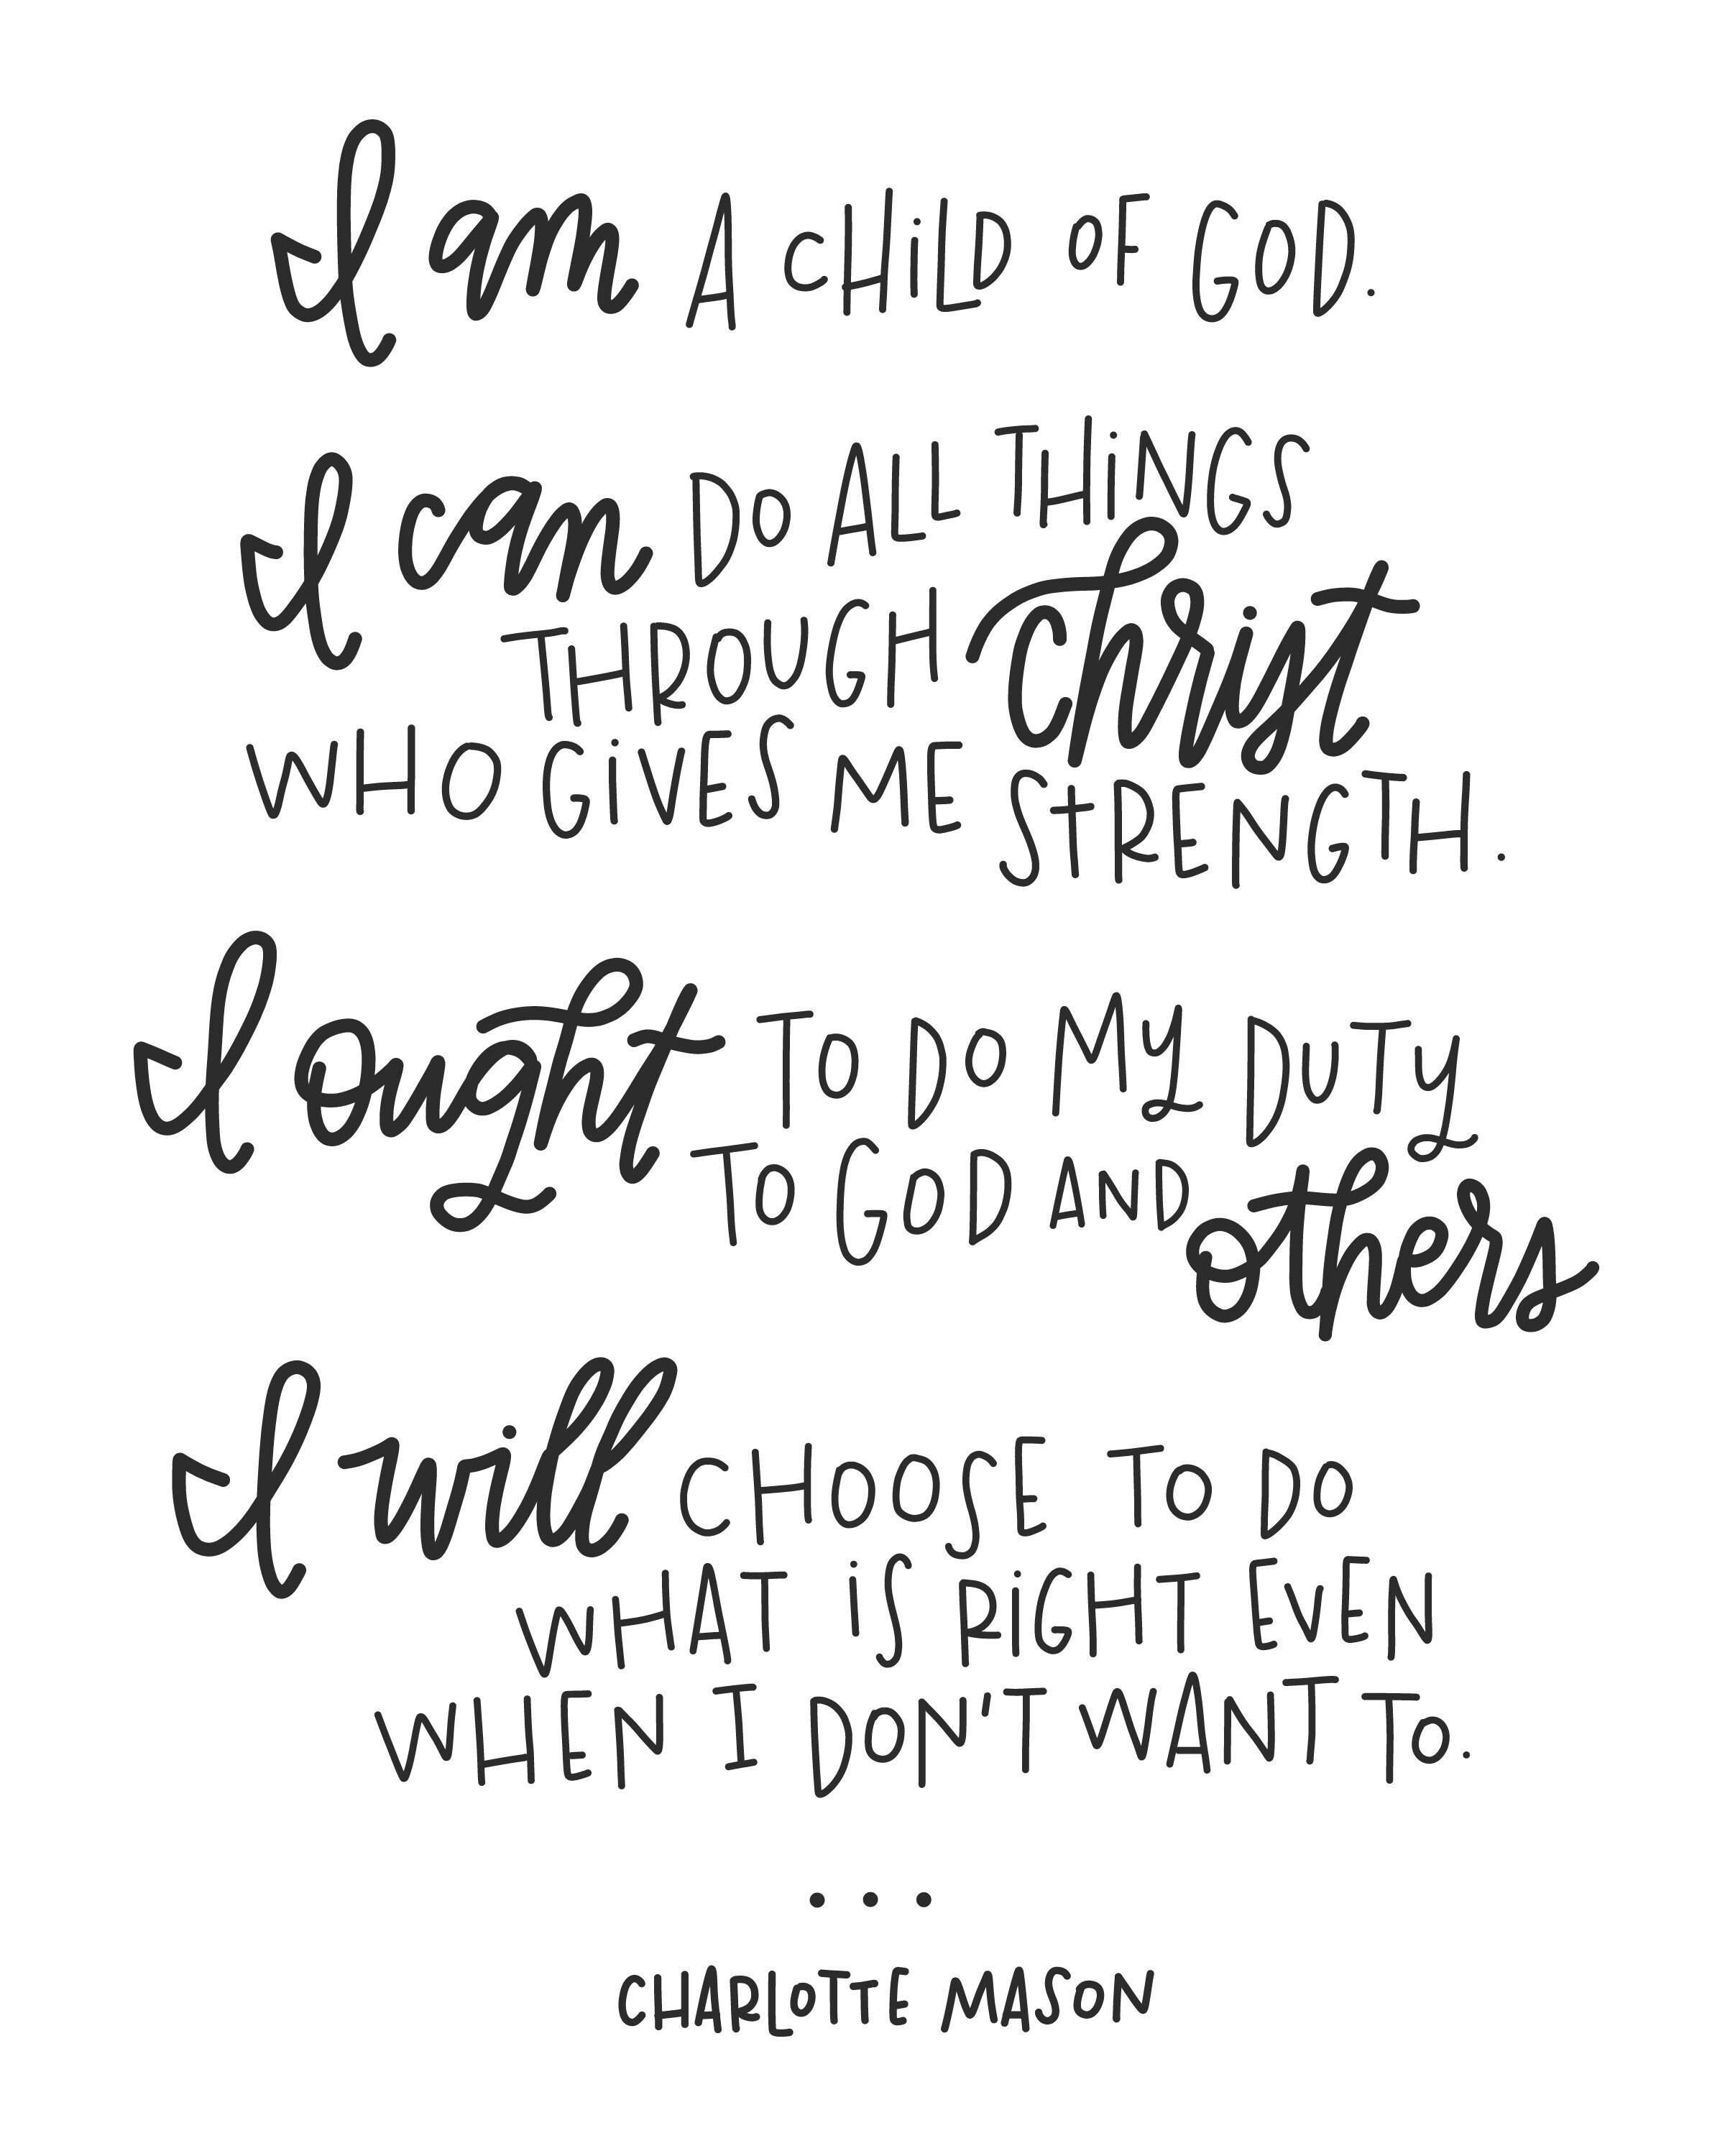 I am A CHiLD OF GOD.
I can DO ALL THiNGS
THROUGH Christ
WHO GiVES ME STRENGTH.
I ought TO DO MY DUTY
TO GOD AND others
I will CHOOSE TO DO
WHAT iS RiGHT EVEN
WHEN I DON'T WANT TO.
...
CHARLOTTE MASON